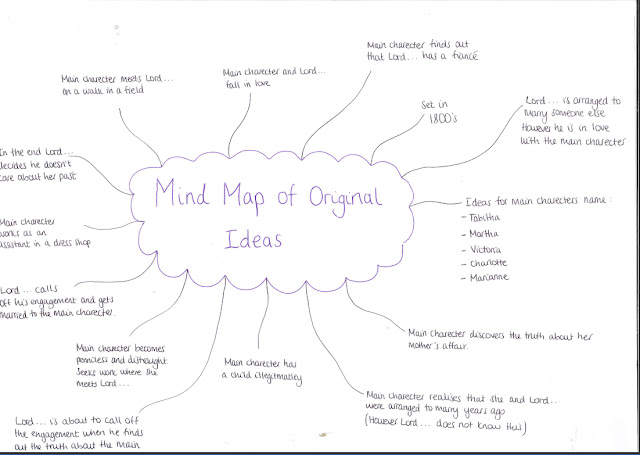 Mind Map of Original
Ideas
Main charecter meets Lord...
on a walk in a field
Main charecter and Lord...
fall in love
Main charecter finds out
that Lord... has a fiancé
Set in
1800's
Lord... is arranged to
marry someone else
However he is in love
with the main charecter
Ideas for main charecters name:
- Tabitha
- Martha
- Victoria
- Charlotte
- Marianne
Main charecter discovers the truth about her
mother's affair.
Main charecter realises that she and Lord...
were arranged to marry years ago
(However Lord... does not know this)
Main charecter has
a child illegitimatley
Lord... is about to call off
the engagement when he finds
out the truth about the main
Main charecter becomes
penniless and distraught.
Seeks work where she
meets Lord...
Lord... calls
off his engagement and gets
married to the main charecter.
Main charecter
works as an
assistant in a dress shop
In the end Lord...
decides he doesn't
care about her past